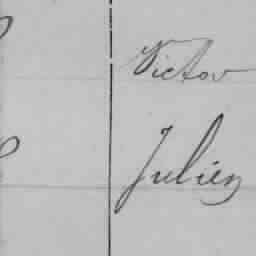 Victor
Julien